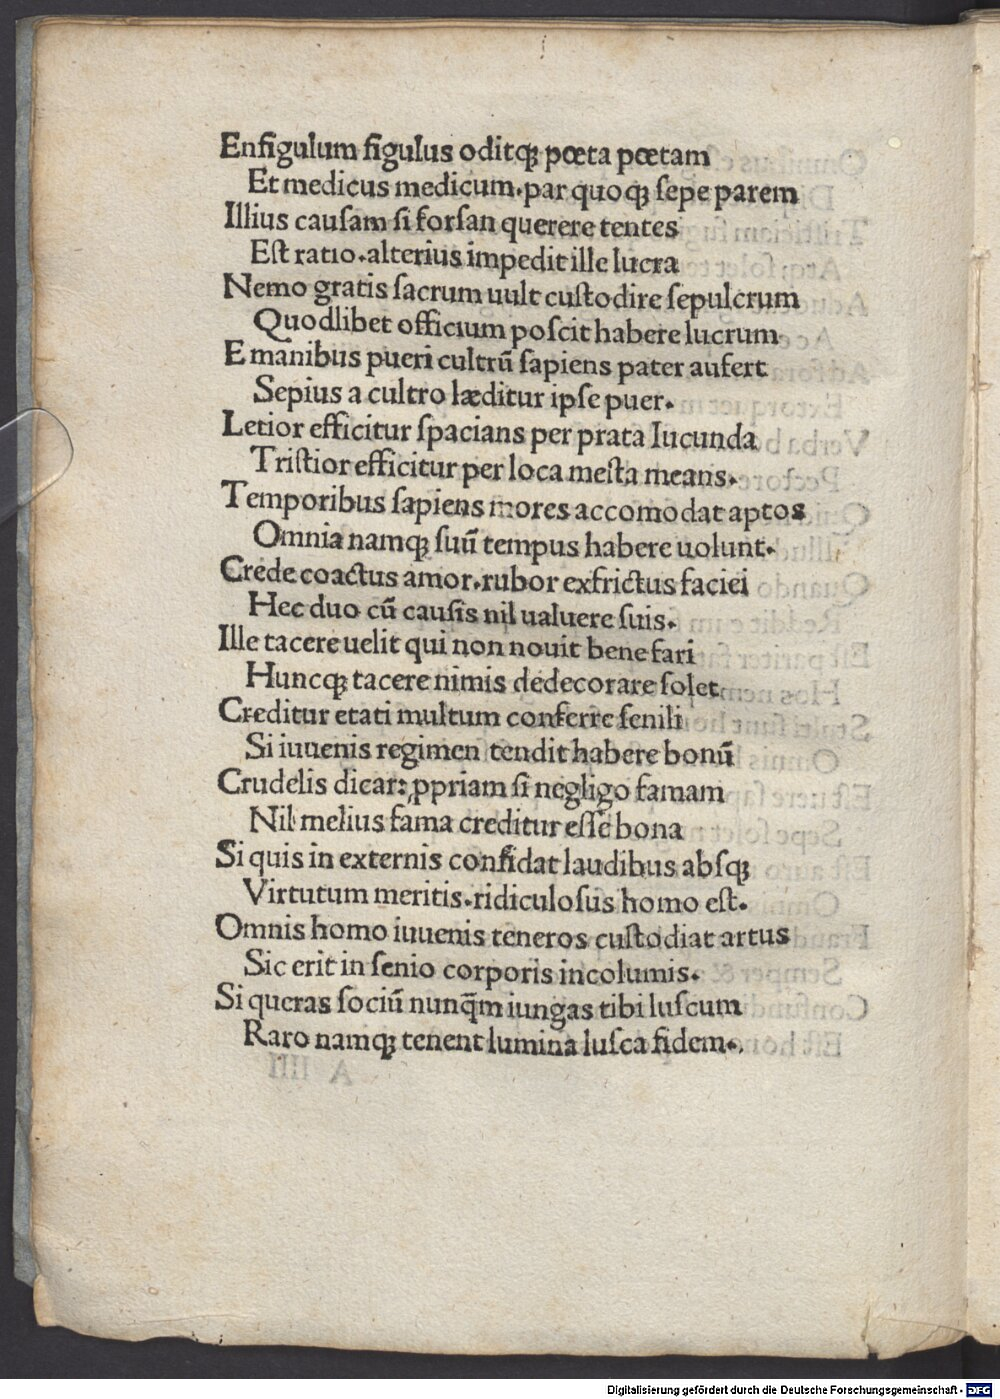 Enfigulum figulus oditqꝫ pœta pœtam
Et medicus medicum.par quoqꝫ sepe parem
Illius causam si forsan querere tentes
Est ratio.alterius impedit ille lucra
Nemo gratis sacrum uult custodire sepulcrum
Quodlibet officium poscit habere lucrum
E manibus pueri cultrū sapiens pater aufert
Sepius a cultro læditur ipse puer.
Letior efficitur spacians per prata Iucunda
Tristior efficitur per loca mesta means.
Temporibus sapiens mores accomodat aptos
Omnia namqꝫ suū tempus habere uolunt.
Crede coactus amor.rubor exfrictus faciei
Hec duo cū causis nil ualuere suis.
Ille tacere uelit qui non nouit bene fari
Huncqꝫ tacere nimis dedecorare solet
Creditur etati multum conferre senili
Si iuuenis regimen tendit habere bonū
Crudelis dicar: ꝓpriam si negligo famam
Nil melius fama creditur esse bona
Si quis in externis confidat laudibus absqꝫ
Virtutum meritis.ridiculosus homo est.
Omnis homo iuuenis teneros custodiat artus
Sic erit in senio corporis incolumis.
Si queras sociū nunq̄m iungas tibi luscum
Raro namqꝫ tenent lumina lusca fidem.
Digitalisierung gefördert durch die Deutsche Forschungsgemeinschaft - DFG